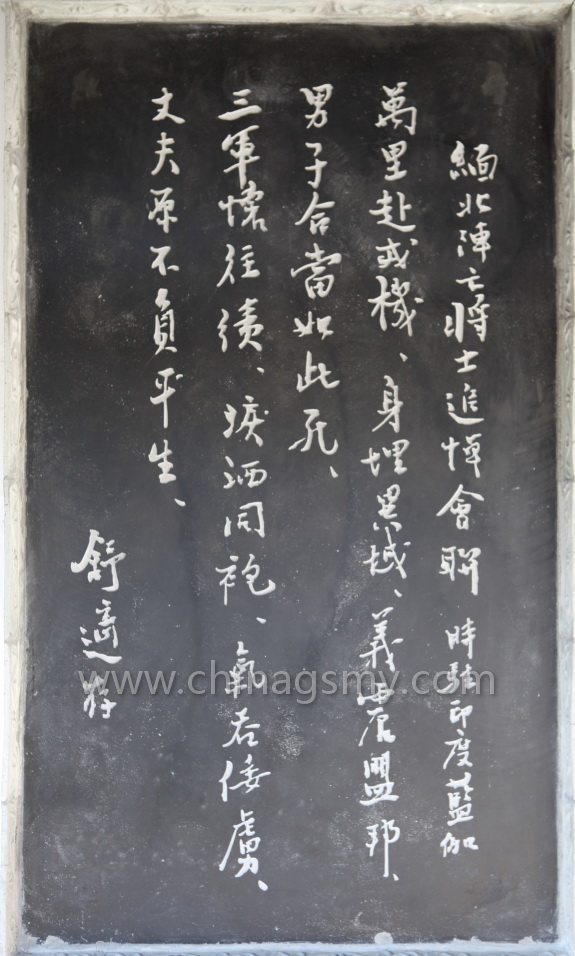 緬北陣亡將士追悼會聯 時駐印度藍伽
萬里赴戎機、身埋異域、義盟邦、
男子合當如此死、
三軍懷往績、淚洒同袍、氣吞倭虜、
丈夫原不負平生、
舒適存
www.chinagsmy.com